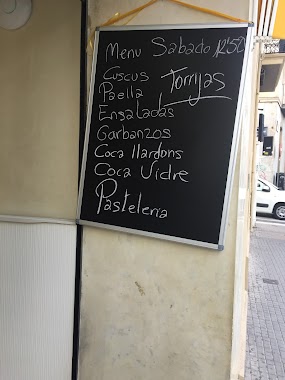 Menu Sabado 12'50
Cuscus
Torrijas
Paella
Ensaladas
Garbanzos
Coca llardons
Coca Vidre
Pasteleria